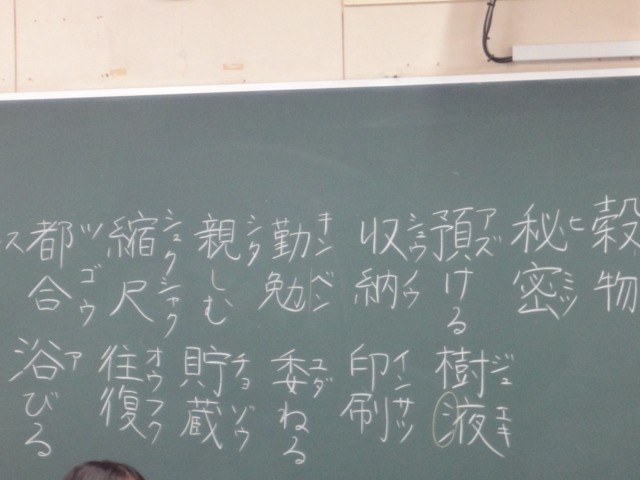 穀物
秘密 ヒミツ
預ける アズ
樹液 ジュエキ
収納 シュウノウ
印刷 インサツ
勤勉 キンベン
委ねる ユダ
親しむ シタ
貯蔵 チョゾウ
縮尺 シュクシャク
往復 オウフク
都合 ツゴウ
浴びる ア
ス